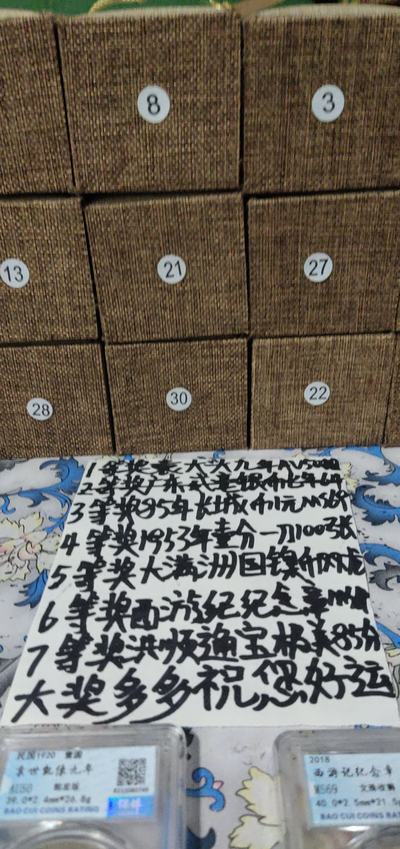 8
3
13
21
27
28
30
22
1等奖袁大头九年AU50
2等奖广东贰毫银币七年
3等奖85年长城币1元MS69
4等奖1953年壹分一刀100张
5等奖大满洲国镍币双龙
6等奖西游纪纪念章
7等奖洪顺通宝极美85分
大奖多多祝您好运
民国1920 壹圆
袁世凯像九年
AU50
39.0*2.4mm*26.8g
BAO CUI COINS RATING
2018
西游记纪念章
MS69
40.0*2.5mm*21.5g
BAO CUI COINS RATING